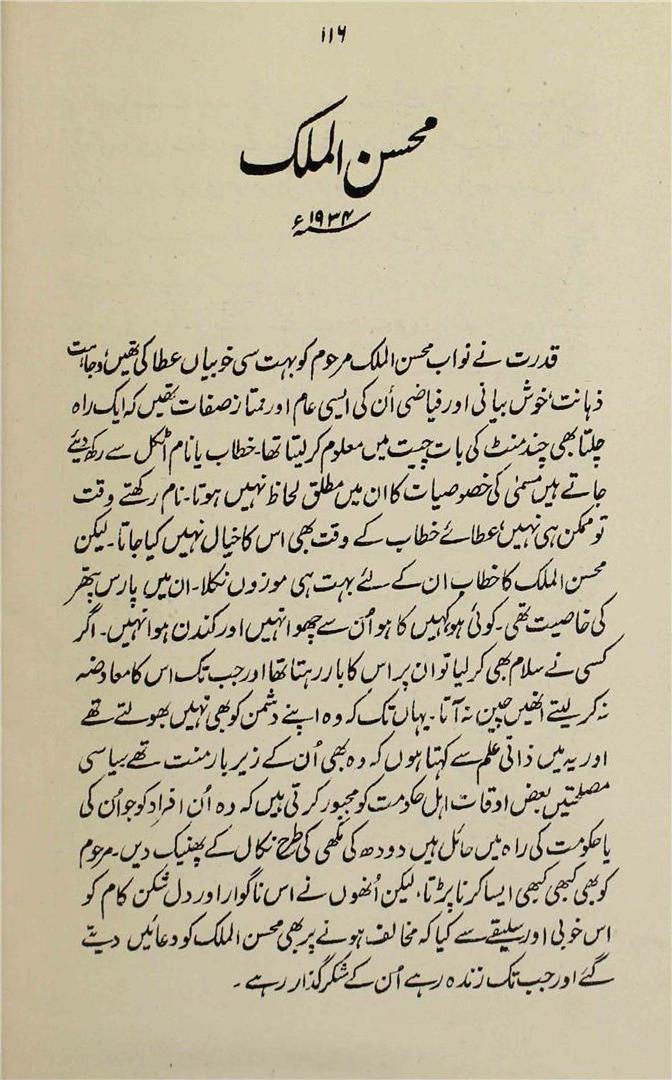 ۱۱۶
محسن الملک
سنہ ۱۹۳۴ء
قدرت نے نواب محسن الملک مرحوم کو بہت سی خوبیاں عطا کی تھیں، وجاہت
ذہانت، خوش بیانی اور فیاضی اُن کی ایسی عام اور ممتاز صفات تھیں کہ ایک راہ
چلتا بھی چند منٹ کی بات چیت میں معلوم کر لیتا تھا۔ خطاب یا نام اٹکل سے رکھ دئیے
جاتے ہیں مسمیٰ کی خصوصیات کا ان میں مطلق لحاظ نہیں ہوتا۔ نام رکھتے وقت
تو ممکن ہی نہیں، عطائے خطاب کے وقت بھی اس کا خیال نہیں کیا جاتا۔ لیکن
محسن الملک کا خطاب ان کے لئے بہت ہی موزوں نکلا۔ ان میں پارس پتھر
کی خاصیت تھی۔ کوئی ہو، کہیں کا ہو اُن سے چھوا نہیں اور کندن ہوا نہیں۔ اگر
کسی نے سلام بھی کر لیا تو ان پر اس کا بار رہتا تھا اور جب تک اس کا معاوضہ
نہ کر لیتے انھیں چین نہ آتا۔ یہاں تک کہ وہ اپنے دشمن کو بھی نہیں بھولتے تھے
اور یہ میں ذاتی علم سے کہتا ہوں کہ وہ بھی اُن کے زیر بار منت تھے سیاسی
مصلحتیں بعض اوقات اہل حکومت کو مجبور کرتی ہیں کہ وہ اُن افراد کو جو اُن کی
یا حکومت کی راہ میں حائل ہیں دودھ کی مکھی کی طرح نکال کے پھینک دیں۔ مرحوم
کو بھی کبھی کبھی ایسا کرنا پڑتا، لیکن اُنھوں نے اس ناگوار اور دل شکن کام کو
اس خوبی اور سلیقے سے کیا کہ مخالف ہونے پر بھی محسن الملک کو دعائیں دیتے
گئے اور جب تک زندہ رہے اُن کے شکر گذار رہے۔